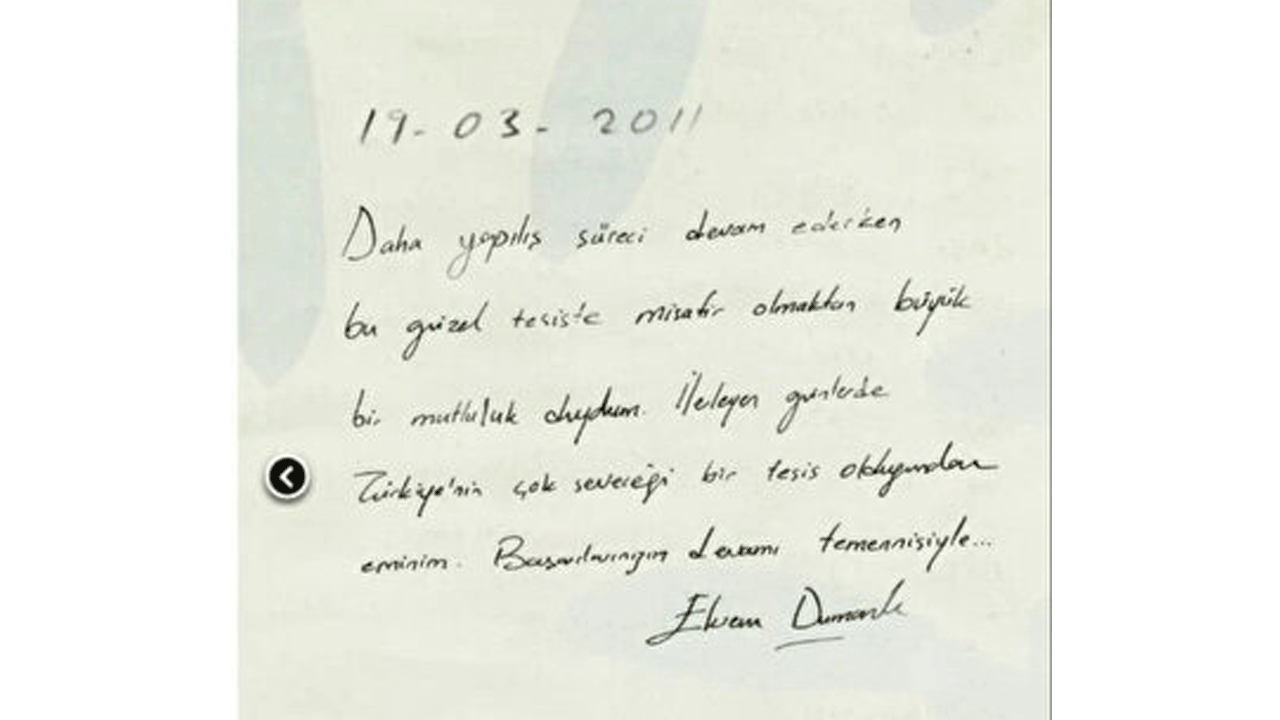 19-03-2011
Daha yapılış süreci devam ederken
bu güzel tesiste misafir olmaktan büyük
bir mutluluk duydum. İlerleyen günlerde
Türkiye'nin çok seveceği bir tesis olduğundan
eminim. Başarılarınızın devamı temennisiyle...